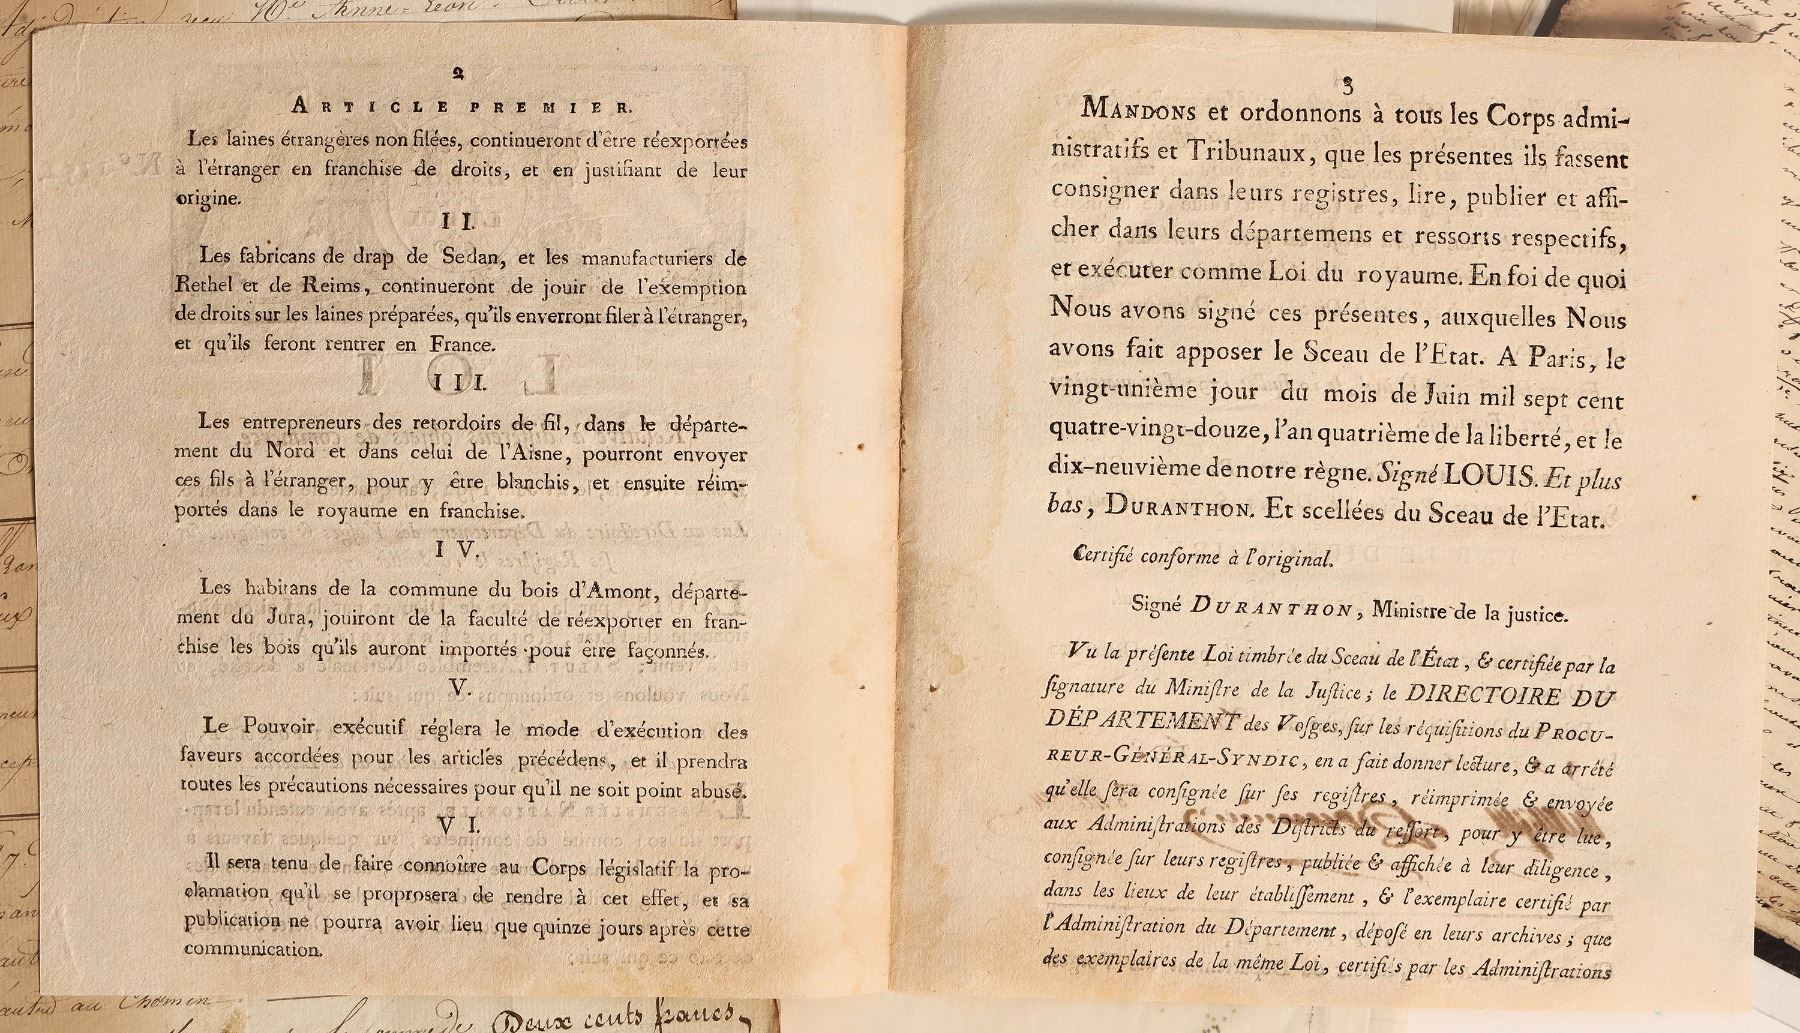 2
ARTICLE PREMIER.
Les laines étrangères non filées, continueront d'être réexportées
à l'étranger en franchise de droits, et en justifiant de leur
origine.
II.
Les fabricans de drap de Sedan, et les manufacturiers de
Rethel et de Reims, continueront de jouir de l'exemption
de droits sur les laines préparées, qu'ils enverront filer à l'étranger,
et qu'ils feront rentrer en France.
III.
Les entrepreneurs des retordoirs de fil, dans le départe-
ment du Nord et dans celui de l'Aisne, pourront envoyer
ces fils à l'étranger, pour y être blanchis, et ensuite réim-
portés dans le royaume en franchise.
IV.
Les habitans de la commune du bois d'Amont, départe-
ment du Jura, jouiront de la faculté de réexporter en fran-
chise les bois qu'ils auront importés pour être façonnés.
V.
Le Pouvoir exécutif réglera le mode d'exécution des
faveurs accordées pour les articles précédens, et il prendra
toutes les précautions nécessaires pour qu'il ne soit point abusé.
VI.
Il sera tenu de faire connoître au Corps législatif la pro-
clamation qu'il se proprosera de rendre à cet effet, et sa
publication ne pourra avoir lieu que quinze jours après cette
communication.
3
MANDONS et ordonnons à tous les Corps admi-
nistratifs et Tribunaux, que les présentes ils fassent
consigner dans leurs registres, lire, publier et affi-
cher dans leurs départemens et ressorts respectifs,
et exécuter comme Loi du royaume. En foi de quoi
Nous avons signé ces présentes, auxquelles Nous
avons fait apposer le Sceau de l'Etat. A Paris, le
vingt-unième jour du mois de Juin mil sept cent
quatre-vingt-douze, l'an quatrième de la liberté, et le
dix-neuvième de notre règne. Signé LOUIS. Et plus
bas, DURANTHON. Et scellées du Sceau de l'Etat.
Certifié conforme à l'original.
Signé DURANTHON, Ministre de la justice.
Vu la préſente Loi timbrée du Sceau de l'État, & certifiée par la
ſignature du Miniſtre de la Juſtice; le DIRECTOIRE DU
DÉPARTEMENT des Voſges, ſur les réquiſitions du PROCU-
REUR-GÉNÉRAL-SYNDIC, en a fait donner lecture, & a arrêté
qu'elle ſera conſignée ſur ſes regiſtres, réimprimée & envoyée
aux Adminiſtrations des Diſtricts du reſſort, pour y être lue,
conſignée ſur leurs regiſtres, publiée & affichée à leur diligence,
dans les lieux de leur établiſſement, & l'exemplaire certifié par
l'Adminiſtration du Département, dépoſé en leurs archives; que
des exemplaires de la même Loi, certifiés par les Adminiſtrations
Deux cents francs,